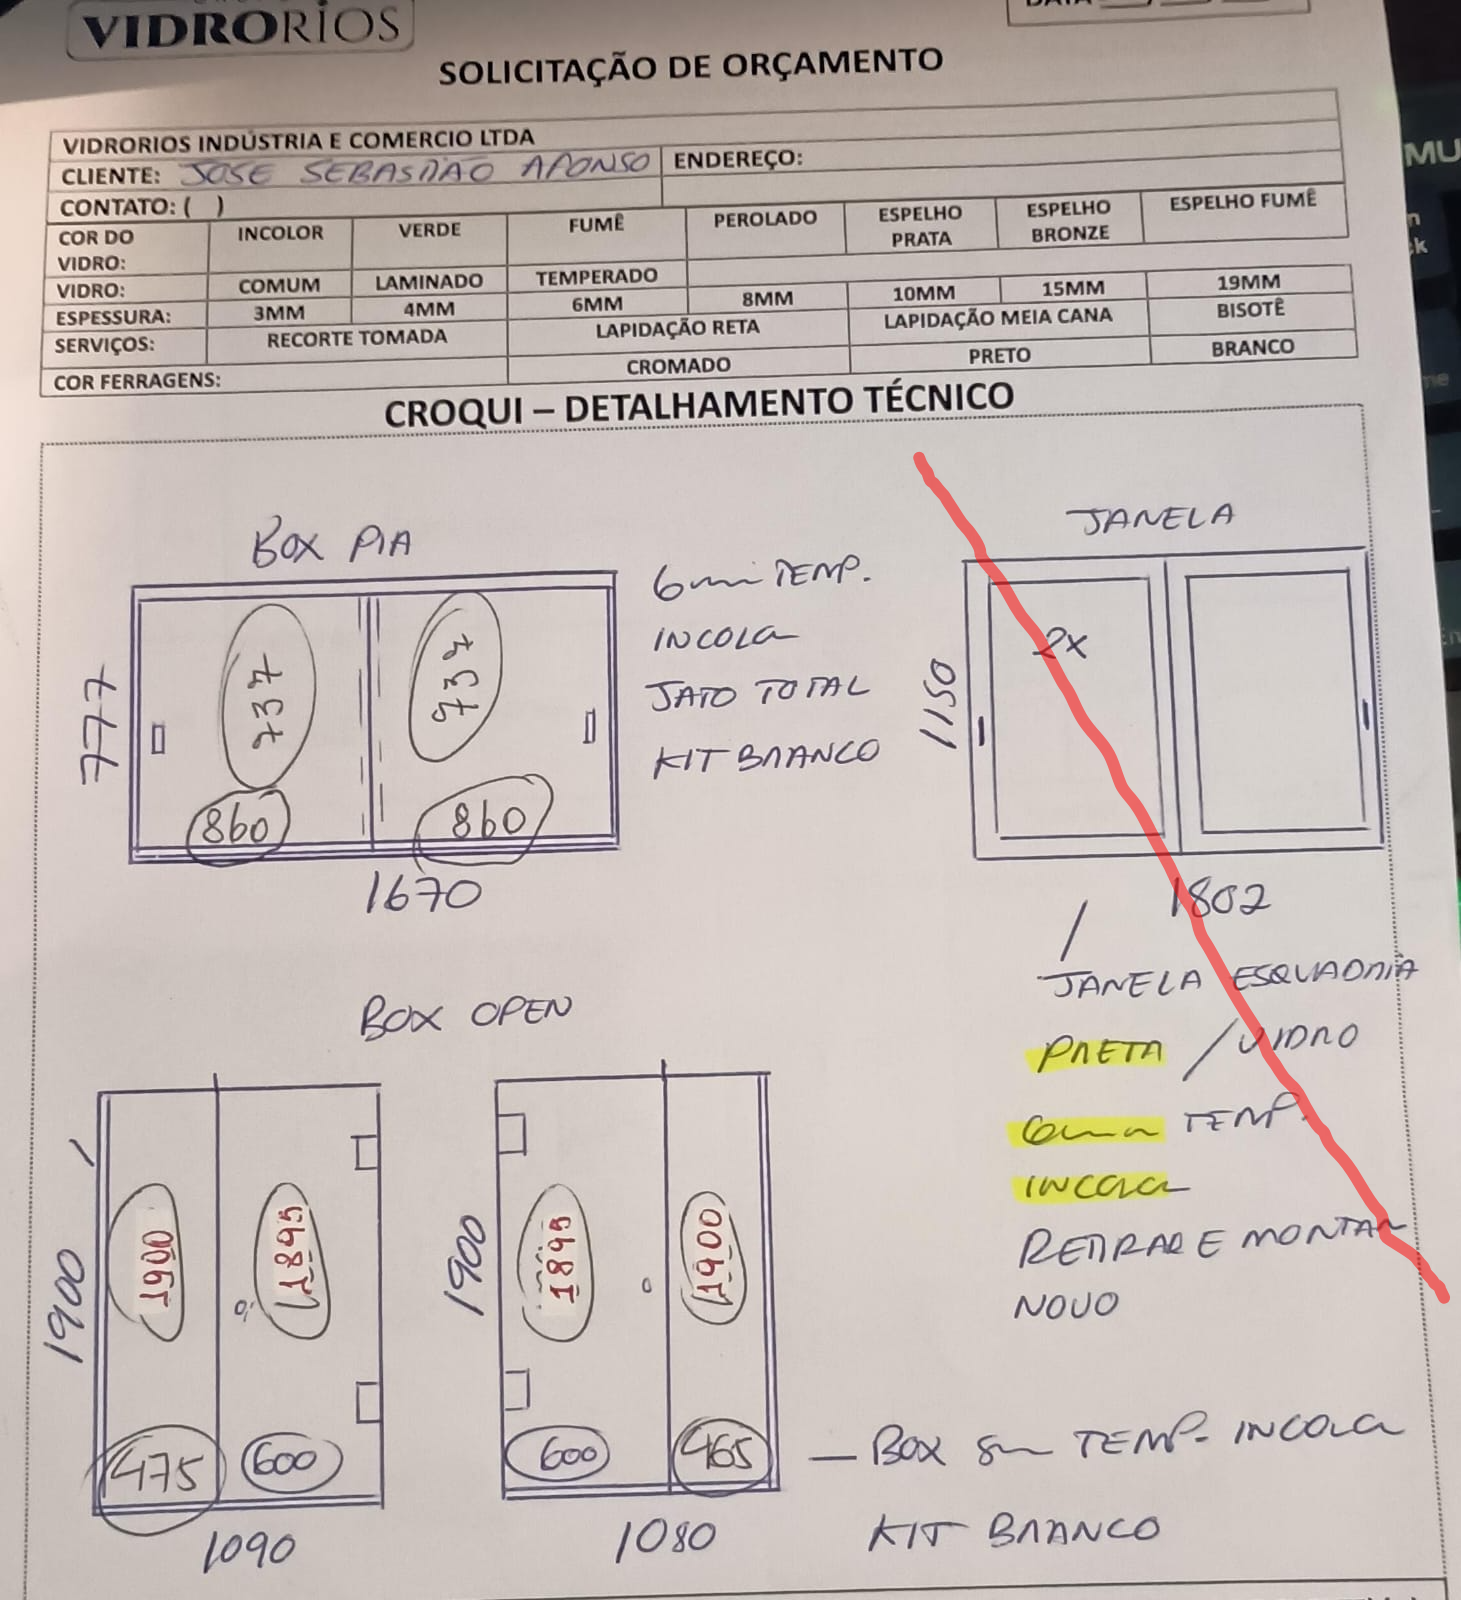 VIDRORIOS
SOLICITAÇÃO DE ORÇAMENTO
VIDRORIOS INDÚSTRIA E COMERCIO LTDA
CLIENTE: JOSE SEBASTIÃO AFONSO ENDEREÇO:
CONTATO: ( )
COR DO VIDRO: INCOLOR VERDE FUMÊ PEROLADO ESPELHO PRATA ESPELHO BRONZE ESPELHO FUMÊ
VIDRO: COMUM LAMINADO TEMPERADO
ESPESSURA: 3MM 4MM 6MM 8MM 10MM 15MM 19MM
SERVIÇOS: RECORTE TOMADA LAPIDAÇÃO RETA LAPIDAÇÃO MEIA CANA BISOTÊ
COR FERRAGENS: CROMADO PRETO BRANCO
CROQUI – DETALHAMENTO TÉCNICO
BOX PIA
777
737
737
860
860
1670
6mm TEMP.
INCOLOR
JATO TOTAL
KIT BRANCO
JANELA
1150
2x
1802
JANELA ESQUADRIA
PRETA / VIDRO
6mm TEMP.
INCOLOR
RETIRAR E MONTAR
NOVO
BOX OPEN
1900
1900
1895
475
600
1090
1900
1895
1900
600
465
1080
— BOX 8m TEMP. INCOLOR
KIT BRANCO